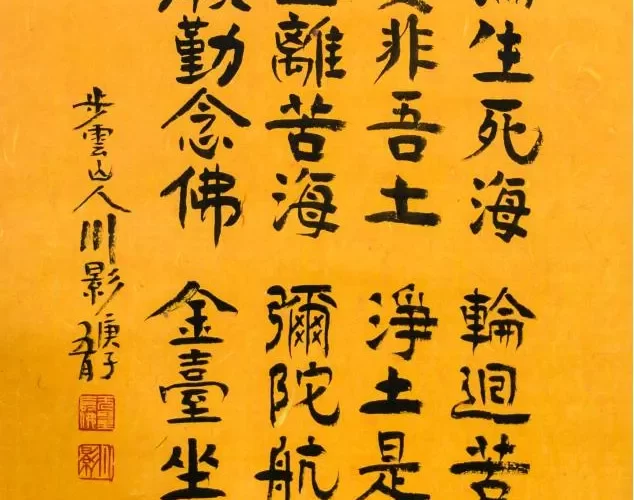 生死海 輪迴苦
非吾土 淨土是
離苦海 彌陀航
勤念佛 金臺坐
步雲山人川影 庚子